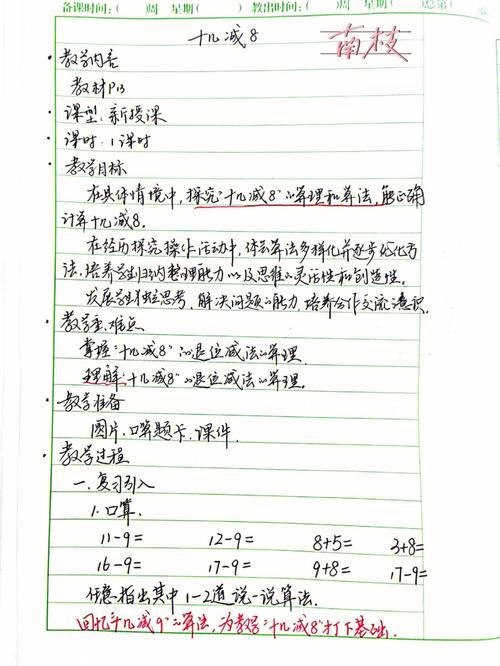 备课时间:( )周 星期( ) 教出时间:( )周 星期( )总第(
十几减8
南枝
·教学内容
教材P13
·课型:新授课
·课时:1课时
·教学目标
在具体情境中,探究“十几减8”的算理和算法,能正确
计算十几减8.
在经历探究操作活动中,体会算法多样化并逐步优化方
法,培养学生归纳整理能力以及思维的灵活性和创造性.
发展学生独立思考,解决问题的能力,培养合作交流意识.
·教学重、难点
掌握“十几减8”的退位减法的算理
理解“十几减8”的退位减法的算理.
·教学准备
图片,口算题卡,课件.
·教学过程
一.复习引入
1.口算.
11-9= 12-9= 8+5= 3+8=
16-9= 17-9= 9+8= 17-9=
任意指出其中1-2道说一说算法.
回忆“十几减9”的算法,为教学“十几减8”打下基础.